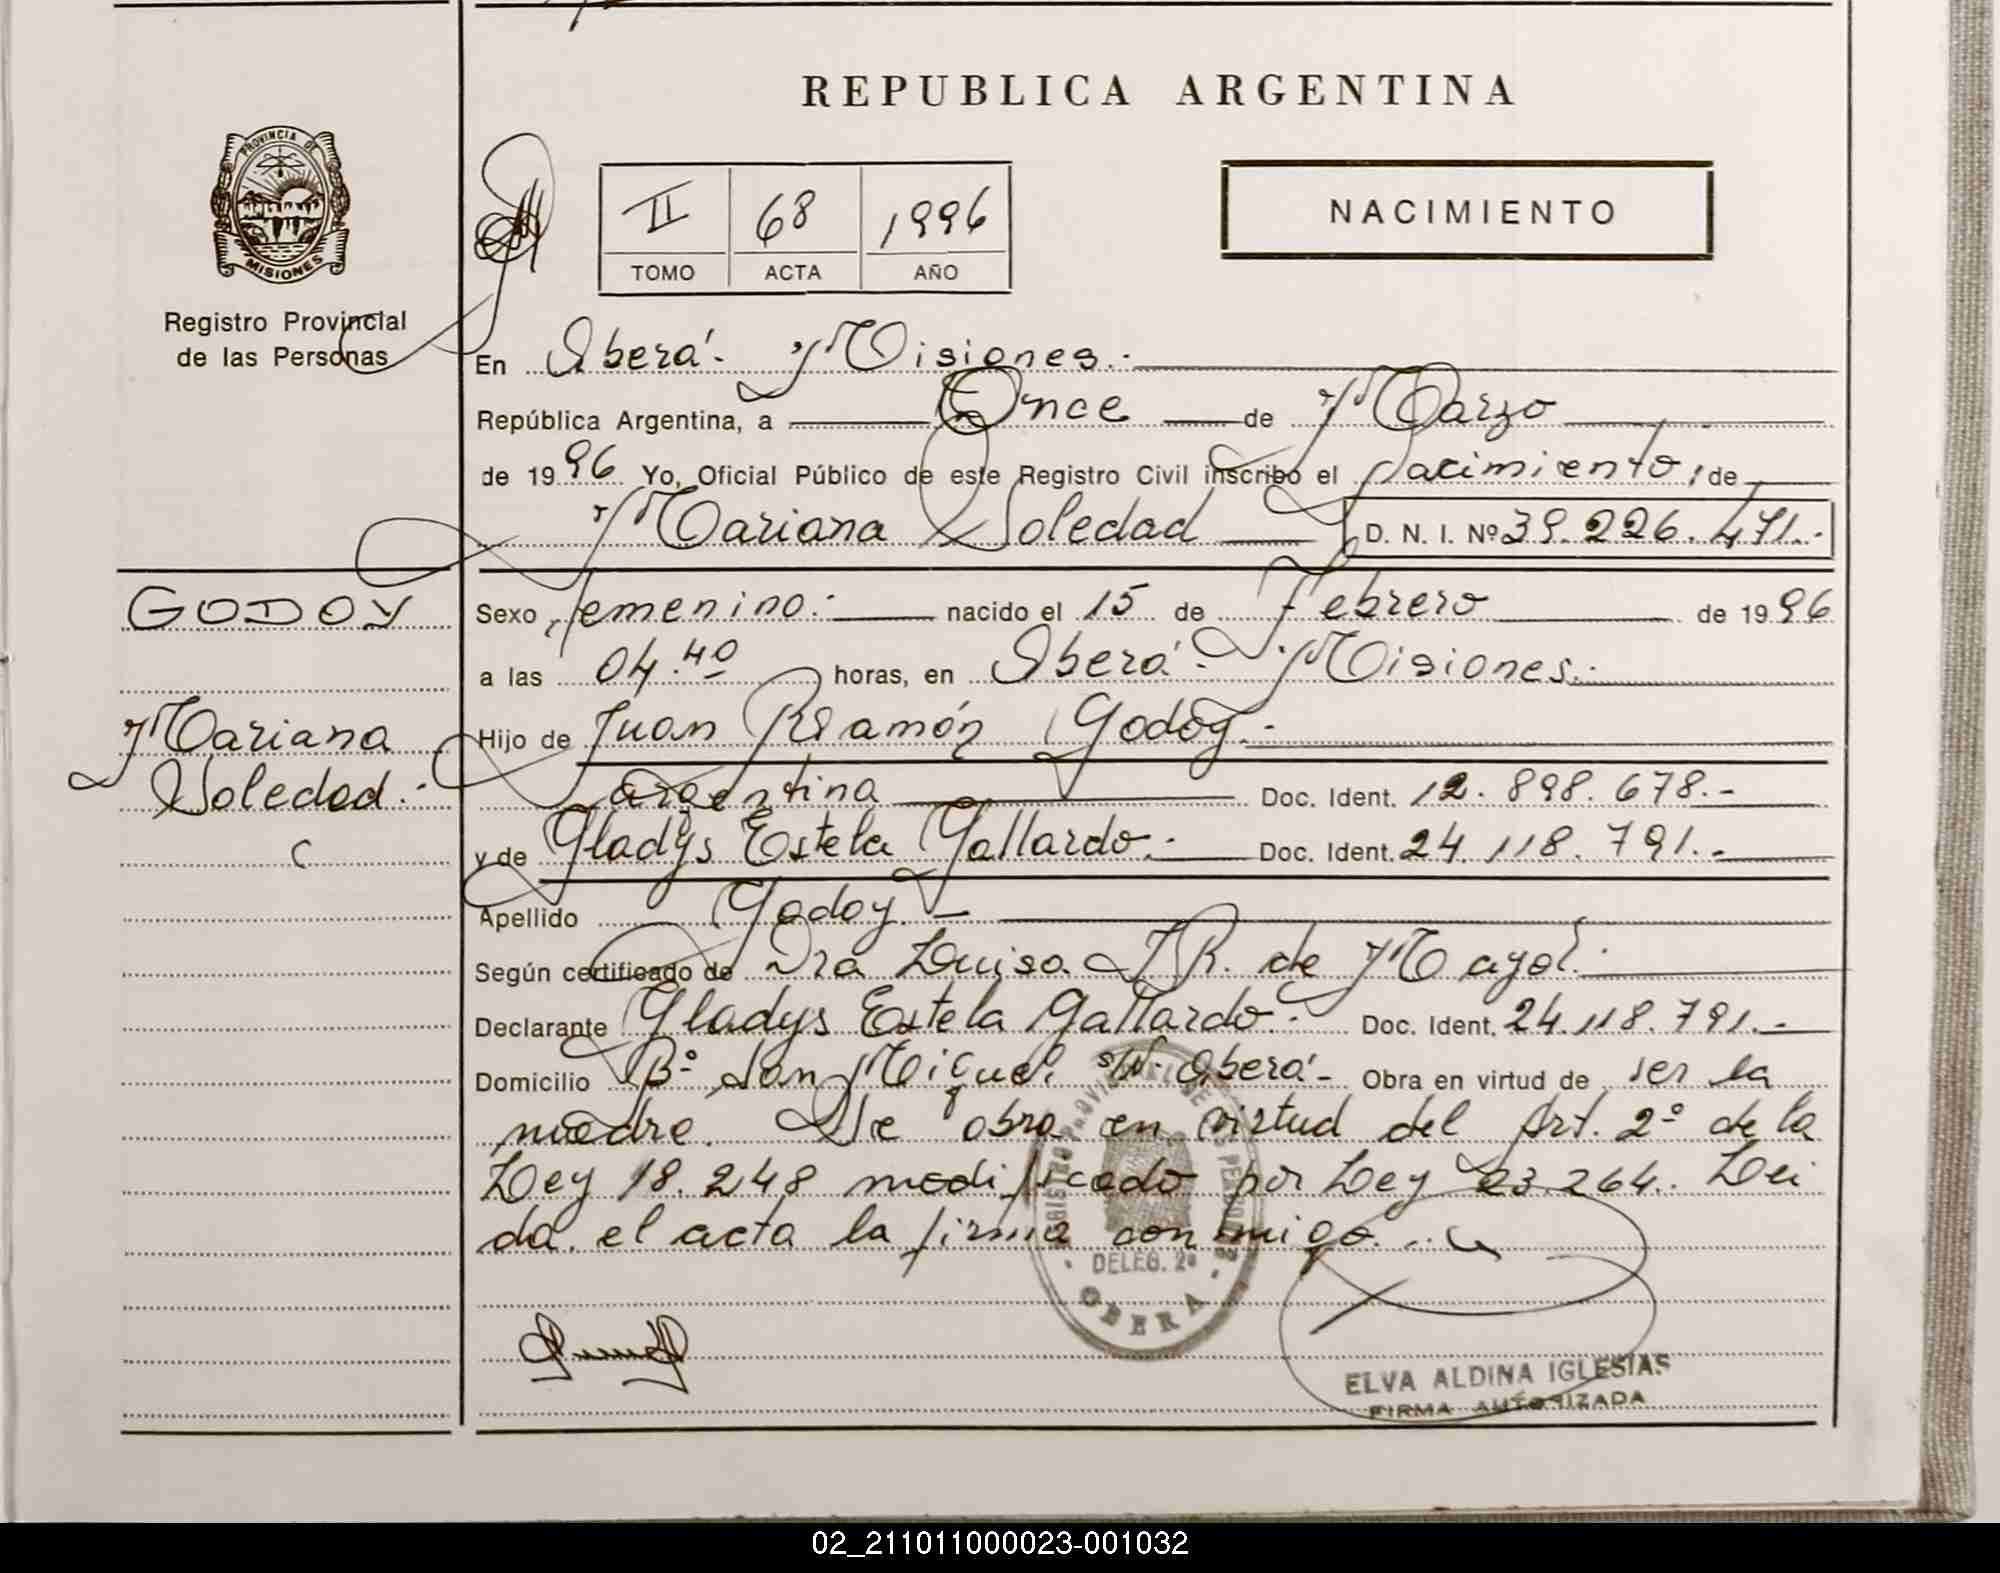 REPUBLICA ARGENTINA
PROVINCIA DE
MISIONES
Registro Provincial
de las Personas
II 68 1996
TOMO ACTA AÑO
NACIMIENTO
En Oberá. Misiones.
República Argentina, a Once de Marzo
de 1996 Yo, Oficial Público de este Registro Civil inscribo el Nacimiento, de
Mariana Soledad D. N. I. Nº 39.226.471.-
GODOY
Mariana
Soledad.-
Sexo femenino.- nacido el 15 de Febrero de 1996
a las 04.40 horas, en Oberá. Misiones.-
Hijo de Juan Ramón Godoy.-
argentina Doc. Ident. 12.898.678.-
y de Gladys Estela Gallardo.- Doc. Ident. 24.118.791.-
Apellido Godoy.-
Según certificado de Dra Luisa J.R. de Mayol.-
Declarante Gladys Estela Gallardo.- Doc. Ident. 24.118.791.-
Domicilio Bº San Miguel s/Nº Oberá.- Obra en virtud de ser la
madre. Se obra en virtud del Art. 2º de la
Ley 18.248 modificado por Ley 23.264. Lei
da el acta la firma conmigo.
DELEG. 2ª
OBERA
ELVA ALDINA IGLESIAS
FIRMA AUTORIZADA
02_211011000023-001032